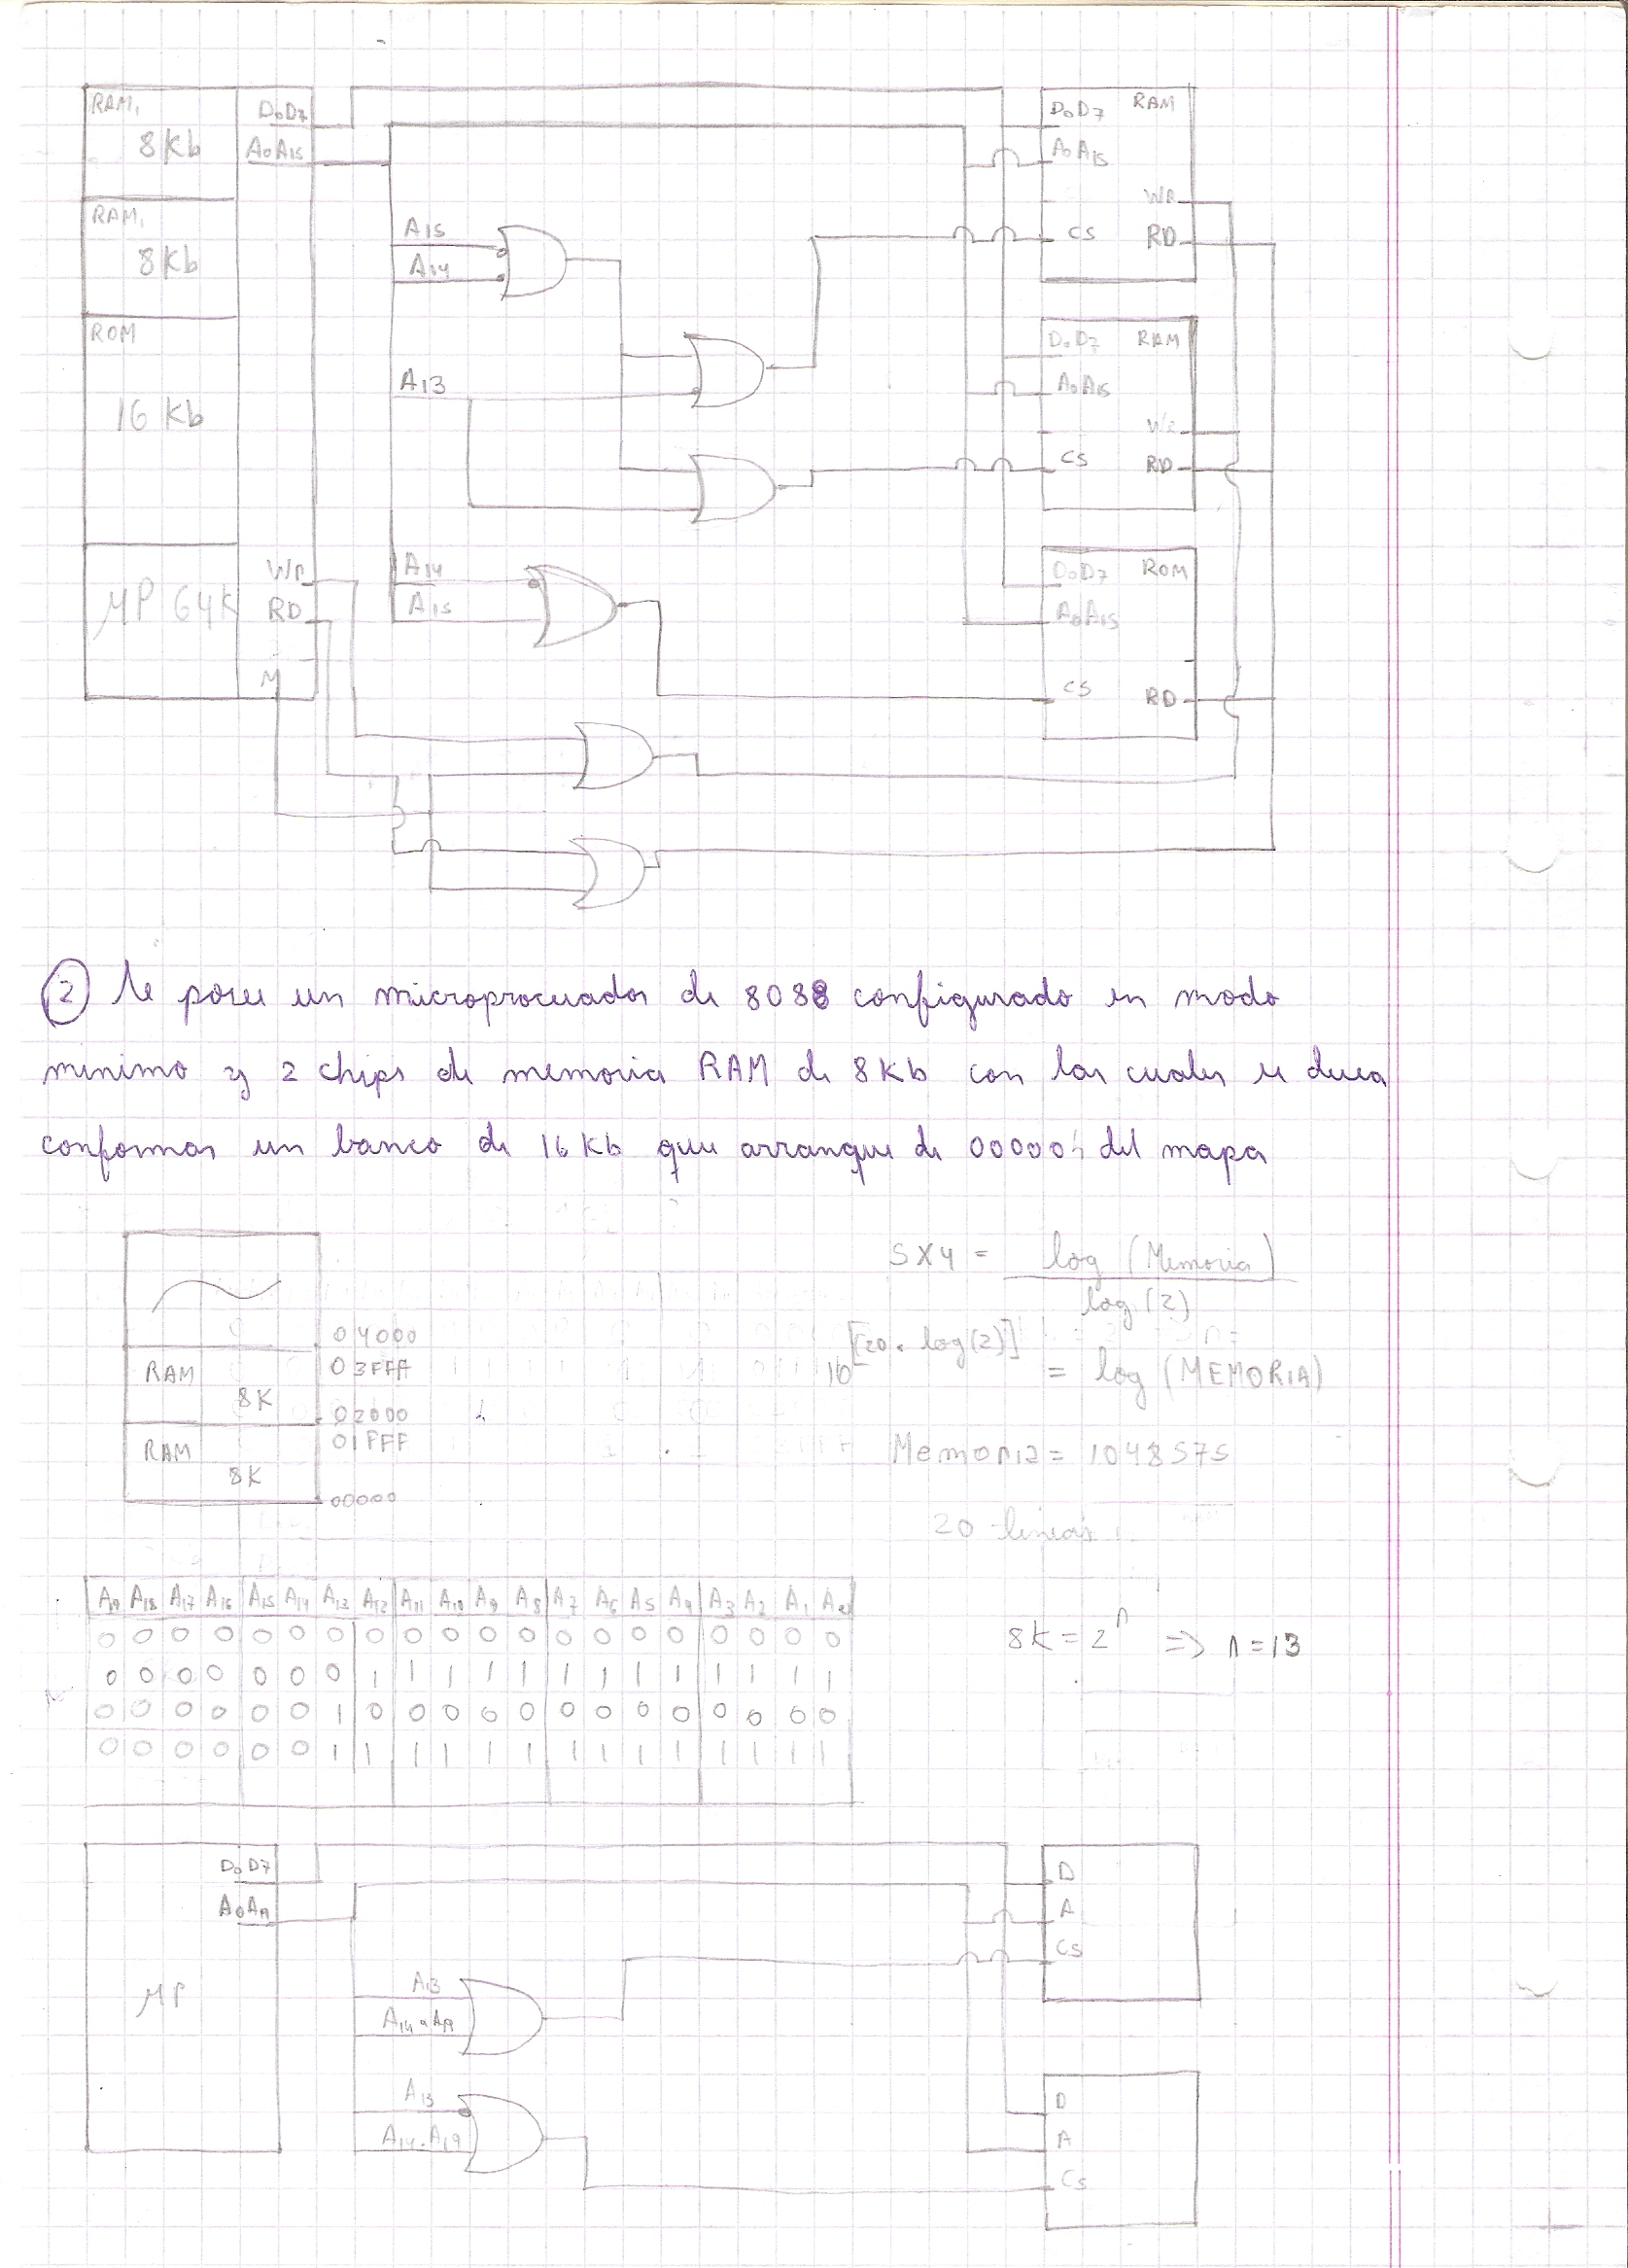 RAM₁
8Kb
D₀D₇
A₀A₁₅
RAM₁
8Kb
ROM
16 Kb
MP 64K
WR
RD
M
A₁₅
A₁₄
A₁₃
A₁₄
A₁₅
D₀D₇ RAM
A₀A₁₅
WR
CS RD
D₀D₇ RAM
A₀A₁₅
WR
CS RD
D₀D₇ ROM
A₀A₁₅
CS RD
② Se posee un microprocesador de 8088 configurado en modo
minimo y 2 chips de memoria RAM de 8Kb con los cuales se desea
conformar un banco de 16 Kb que arranque de 00000h del mapa
04000
RAM 03FFF
8K
02000
RAM 01FFF
8K
00000
5X4 = log (Memoria)
log (2)
10 [20. log(2)] = log (MEMORIA)
Memoria = 1048575
20 lineas
A₁₉ A₁₈ A₁₇ A₁₆ A₁₅ A₁₄ A₁₃ A₁₂ A₁₁ A₁₀ A₉ A₈ A₇ A₆ A₅ A₄ A₃ A₂ A₁ A₀
0 0 0 0 0 0 0 0 0 0 0 0 0 0 0 0 0 0 0 0
0 0 0 0 0 0 0 1 1 1 1 1 1 1 1 1 1 1 1 1
0 0 0 0 0 0 1 0 0 0 0 0 0 0 0 0 0 0 0 0
0 0 0 0 0 0 1 1 1 1 1 1 1 1 1 1 1 1 1 1
8K = 2ⁿ => n=13
D₀D7
A₀A₁₉
MP
A₁₃
A₁₄ A₁₉
A₁₃
A₁₄.A₁₉
D
A
CS
D
A
CS